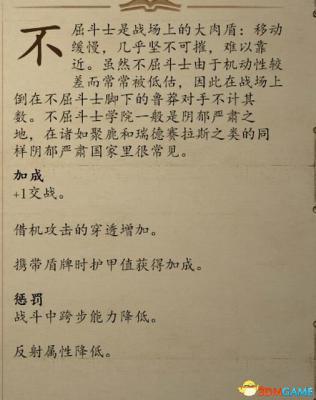 不屈斗士是战场上的大肉盾：移动
缓慢，几乎坚不可摧，难以靠
近。虽然不屈斗士由于机动性较
差而常常被低估，因此在战场上
倒在不屈斗士脚下的鲁莽对手不计其
数。不屈斗士学院一般是阴郁严肃之
地，在诸如聚鹿和瑞德赛拉斯之类的同
样阴郁严肃国家里很常见。
加成
+1交战。
借机攻击的穿透增加。
携带盾牌时护甲值获得加成。
惩罚
战斗中跨步能力降低。
反射属性降低。
3DMGAME